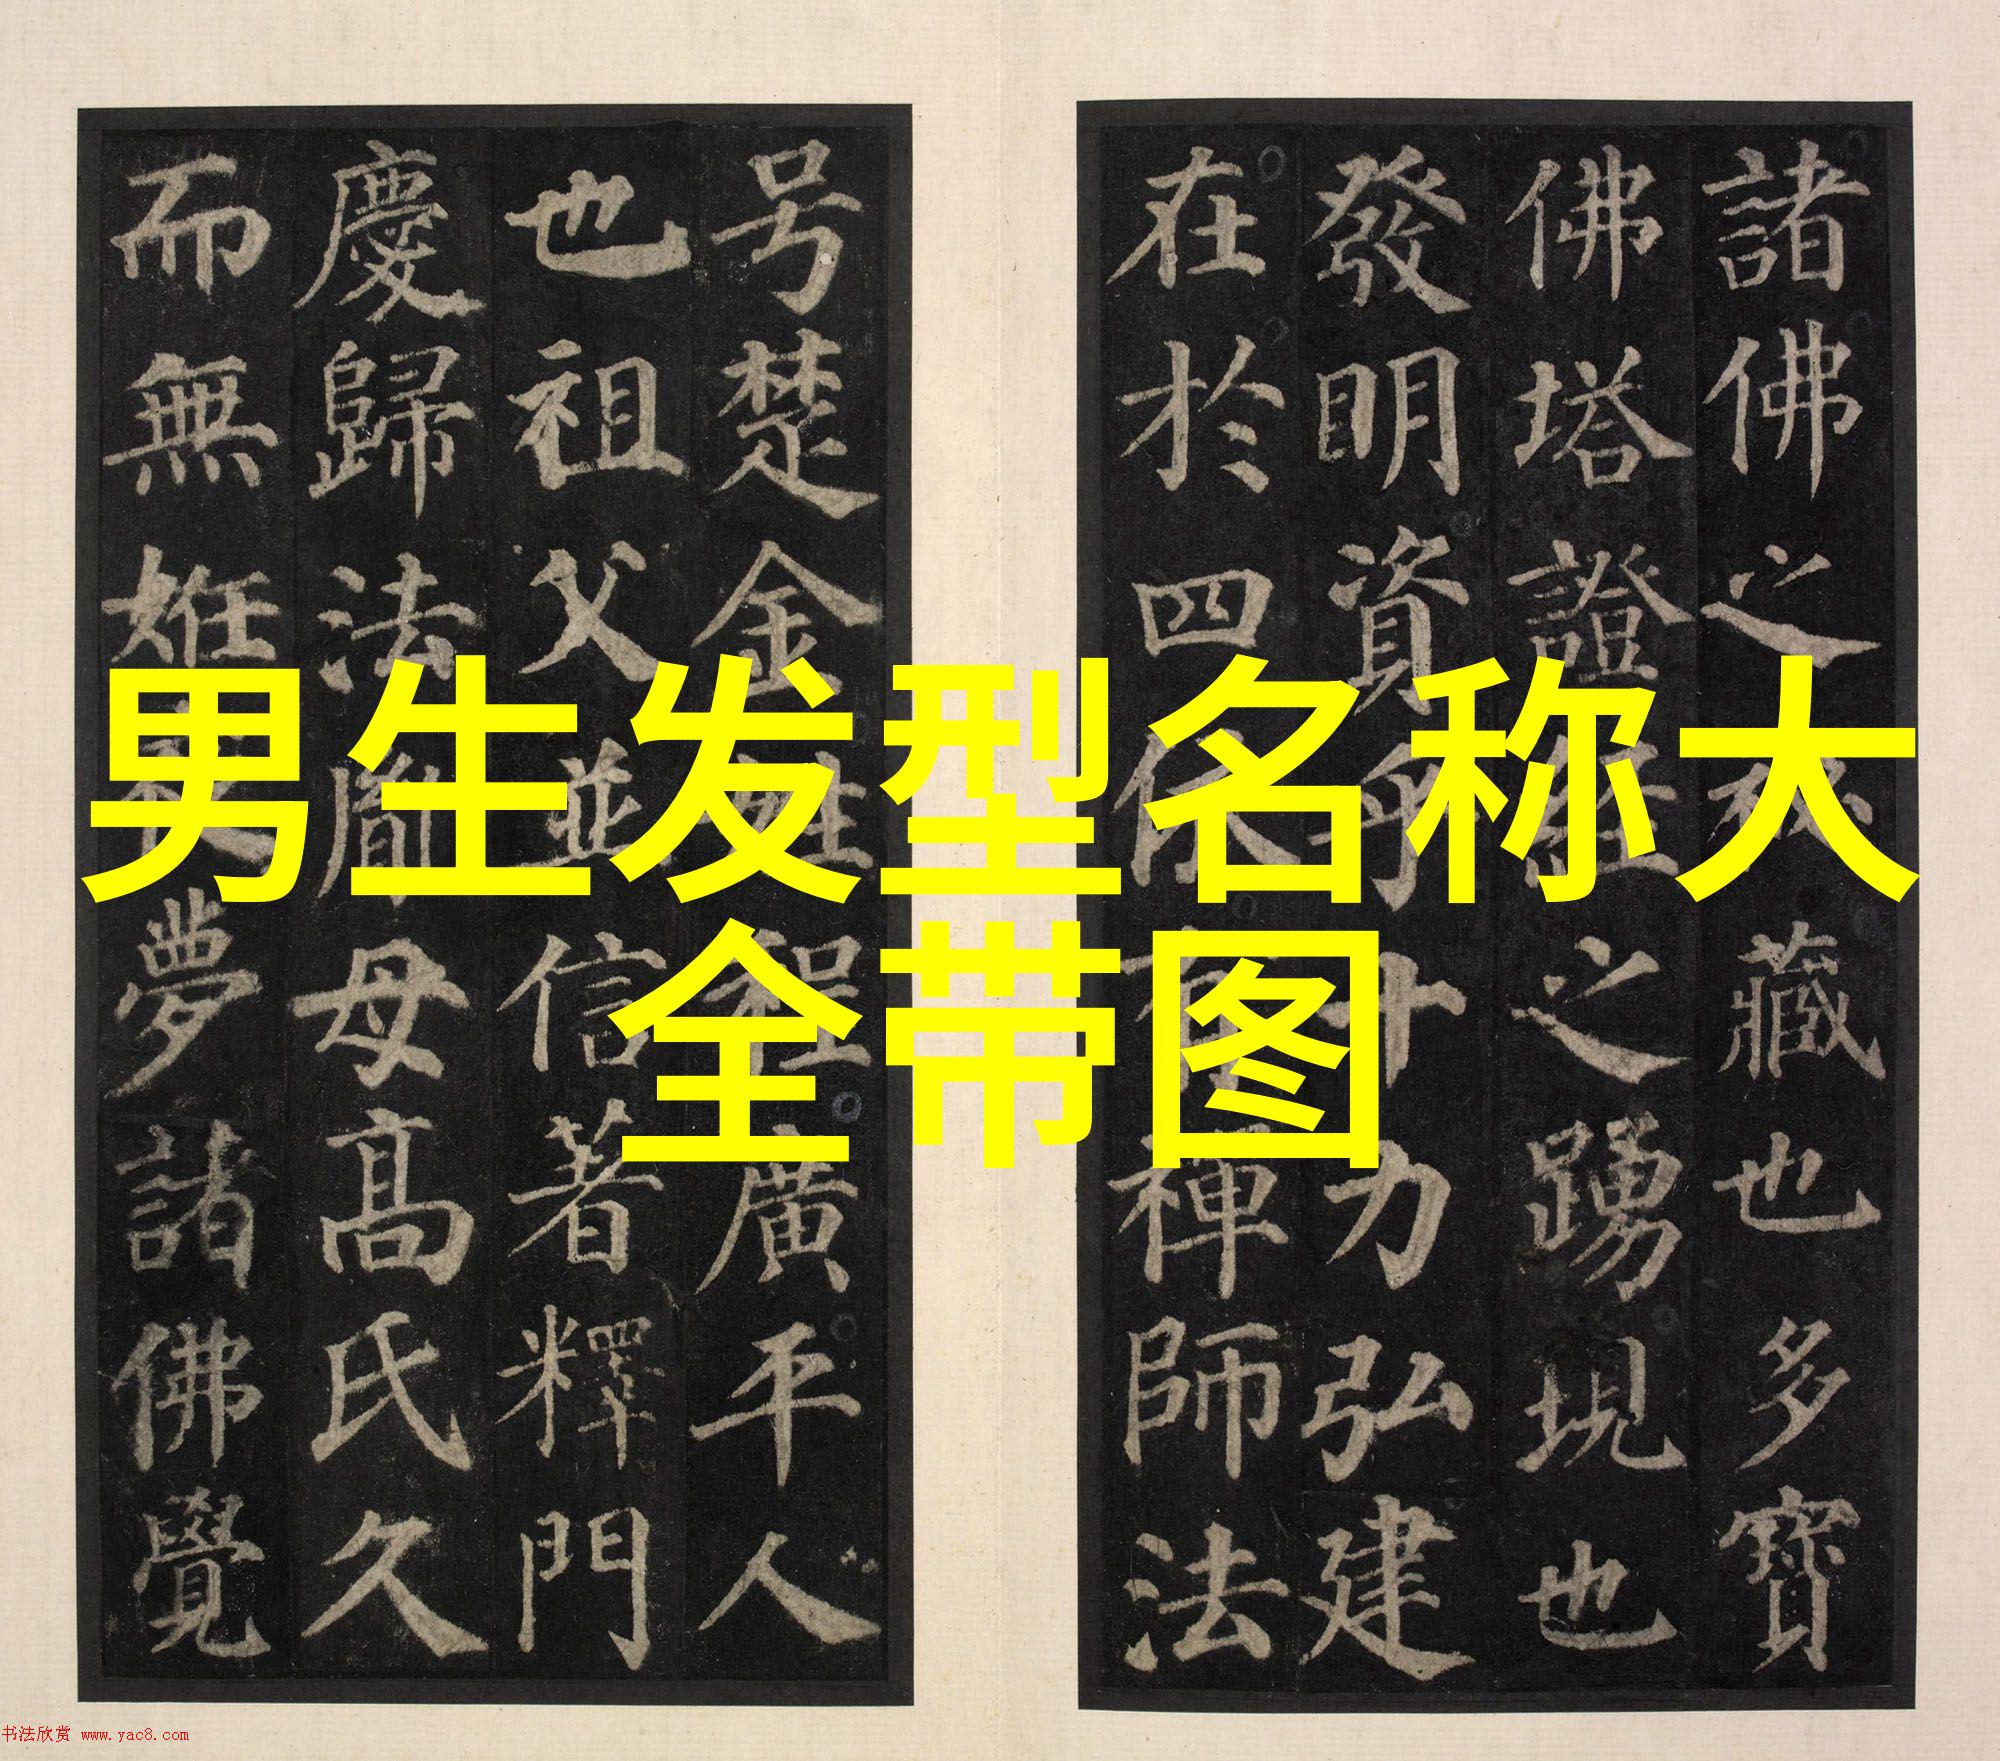 男生发型名称大
全带图
諸佛之秘藏也多寶
佛塔證經之踴現也
發明資乎十力弘建
在於四依有禪師法
号楚金姓程廣平人
也祖父並信著釋門
慶歸法胤母髙氏久
而無姙夜夢諸佛覺
书法欣赏 www.yac8.com